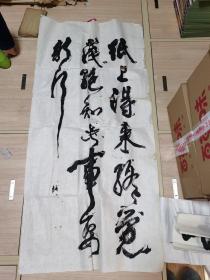 纸上得来终觉
浅绝知此事要
躬行